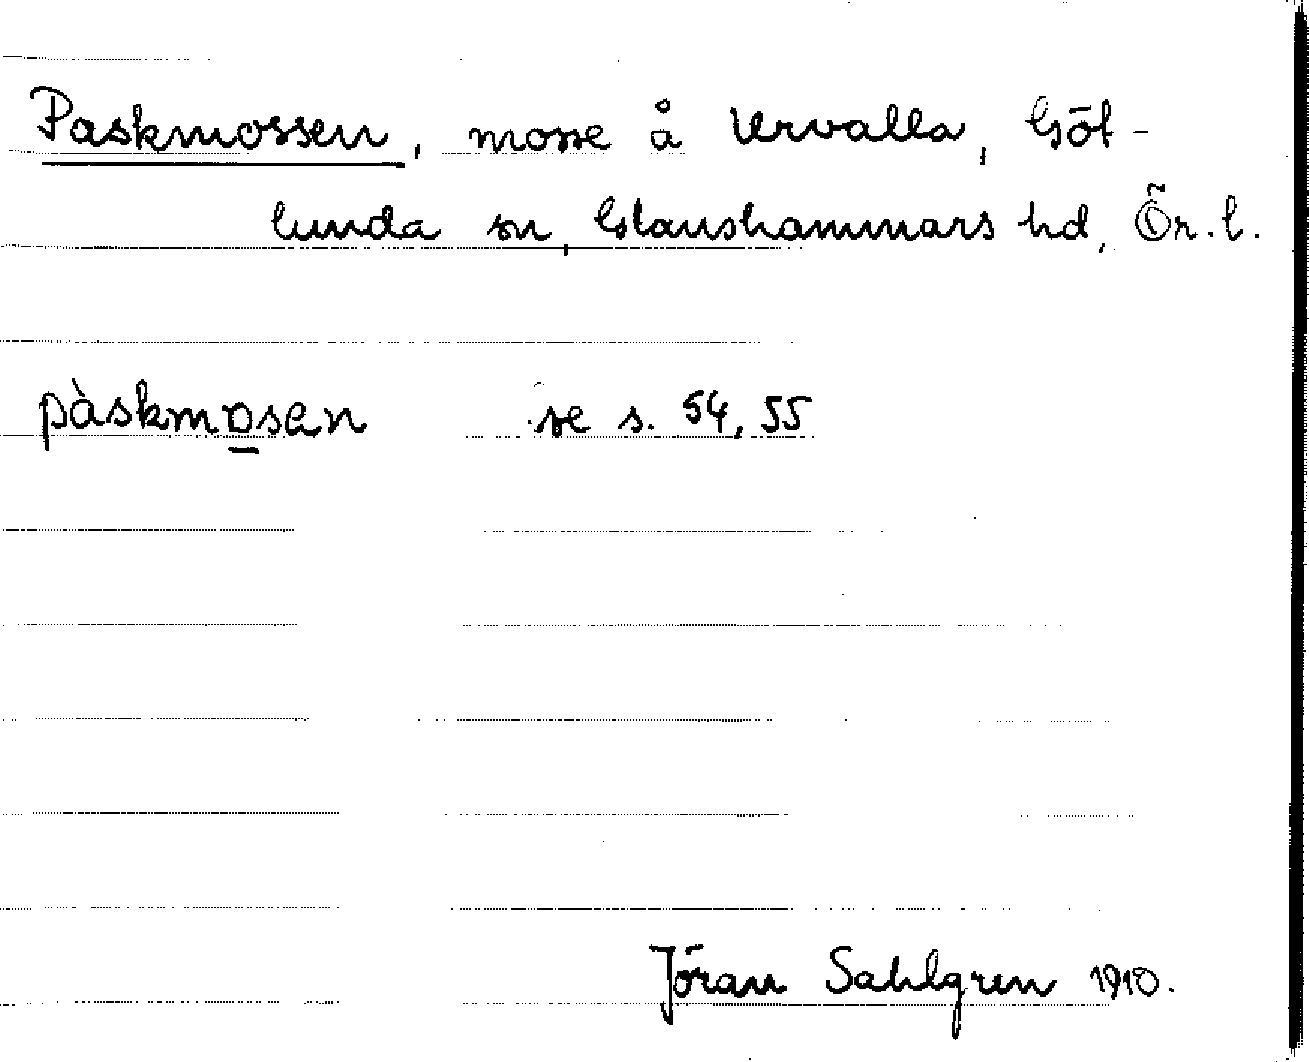 Paskmossen, mosse å Urvalla, Göt-
lunda sn, Glanshammars hd, Ör. l.
pàskmosen se s. 54, 55
Jöran Sahlgren 1910.